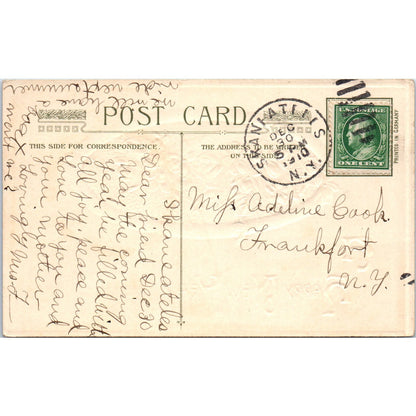 POST CARD
THIS SIDE FOR CORRESPONDENCE
THE ADDRESS TO BE WRITTEN
ON THIS SIDE
SKANEATELES
DEC
30
N.Y.
U.S. POSTAGE
ONE CENT
PRINTED IN GERMANY
Miss Adeline Cook
Frankfort
N.Y.
Skaneateles
Dear friend Dec 30
May the coming
year be filled with
all joy, peace and
love to you and
your mother
Lovingly
we will have a
ride next summer